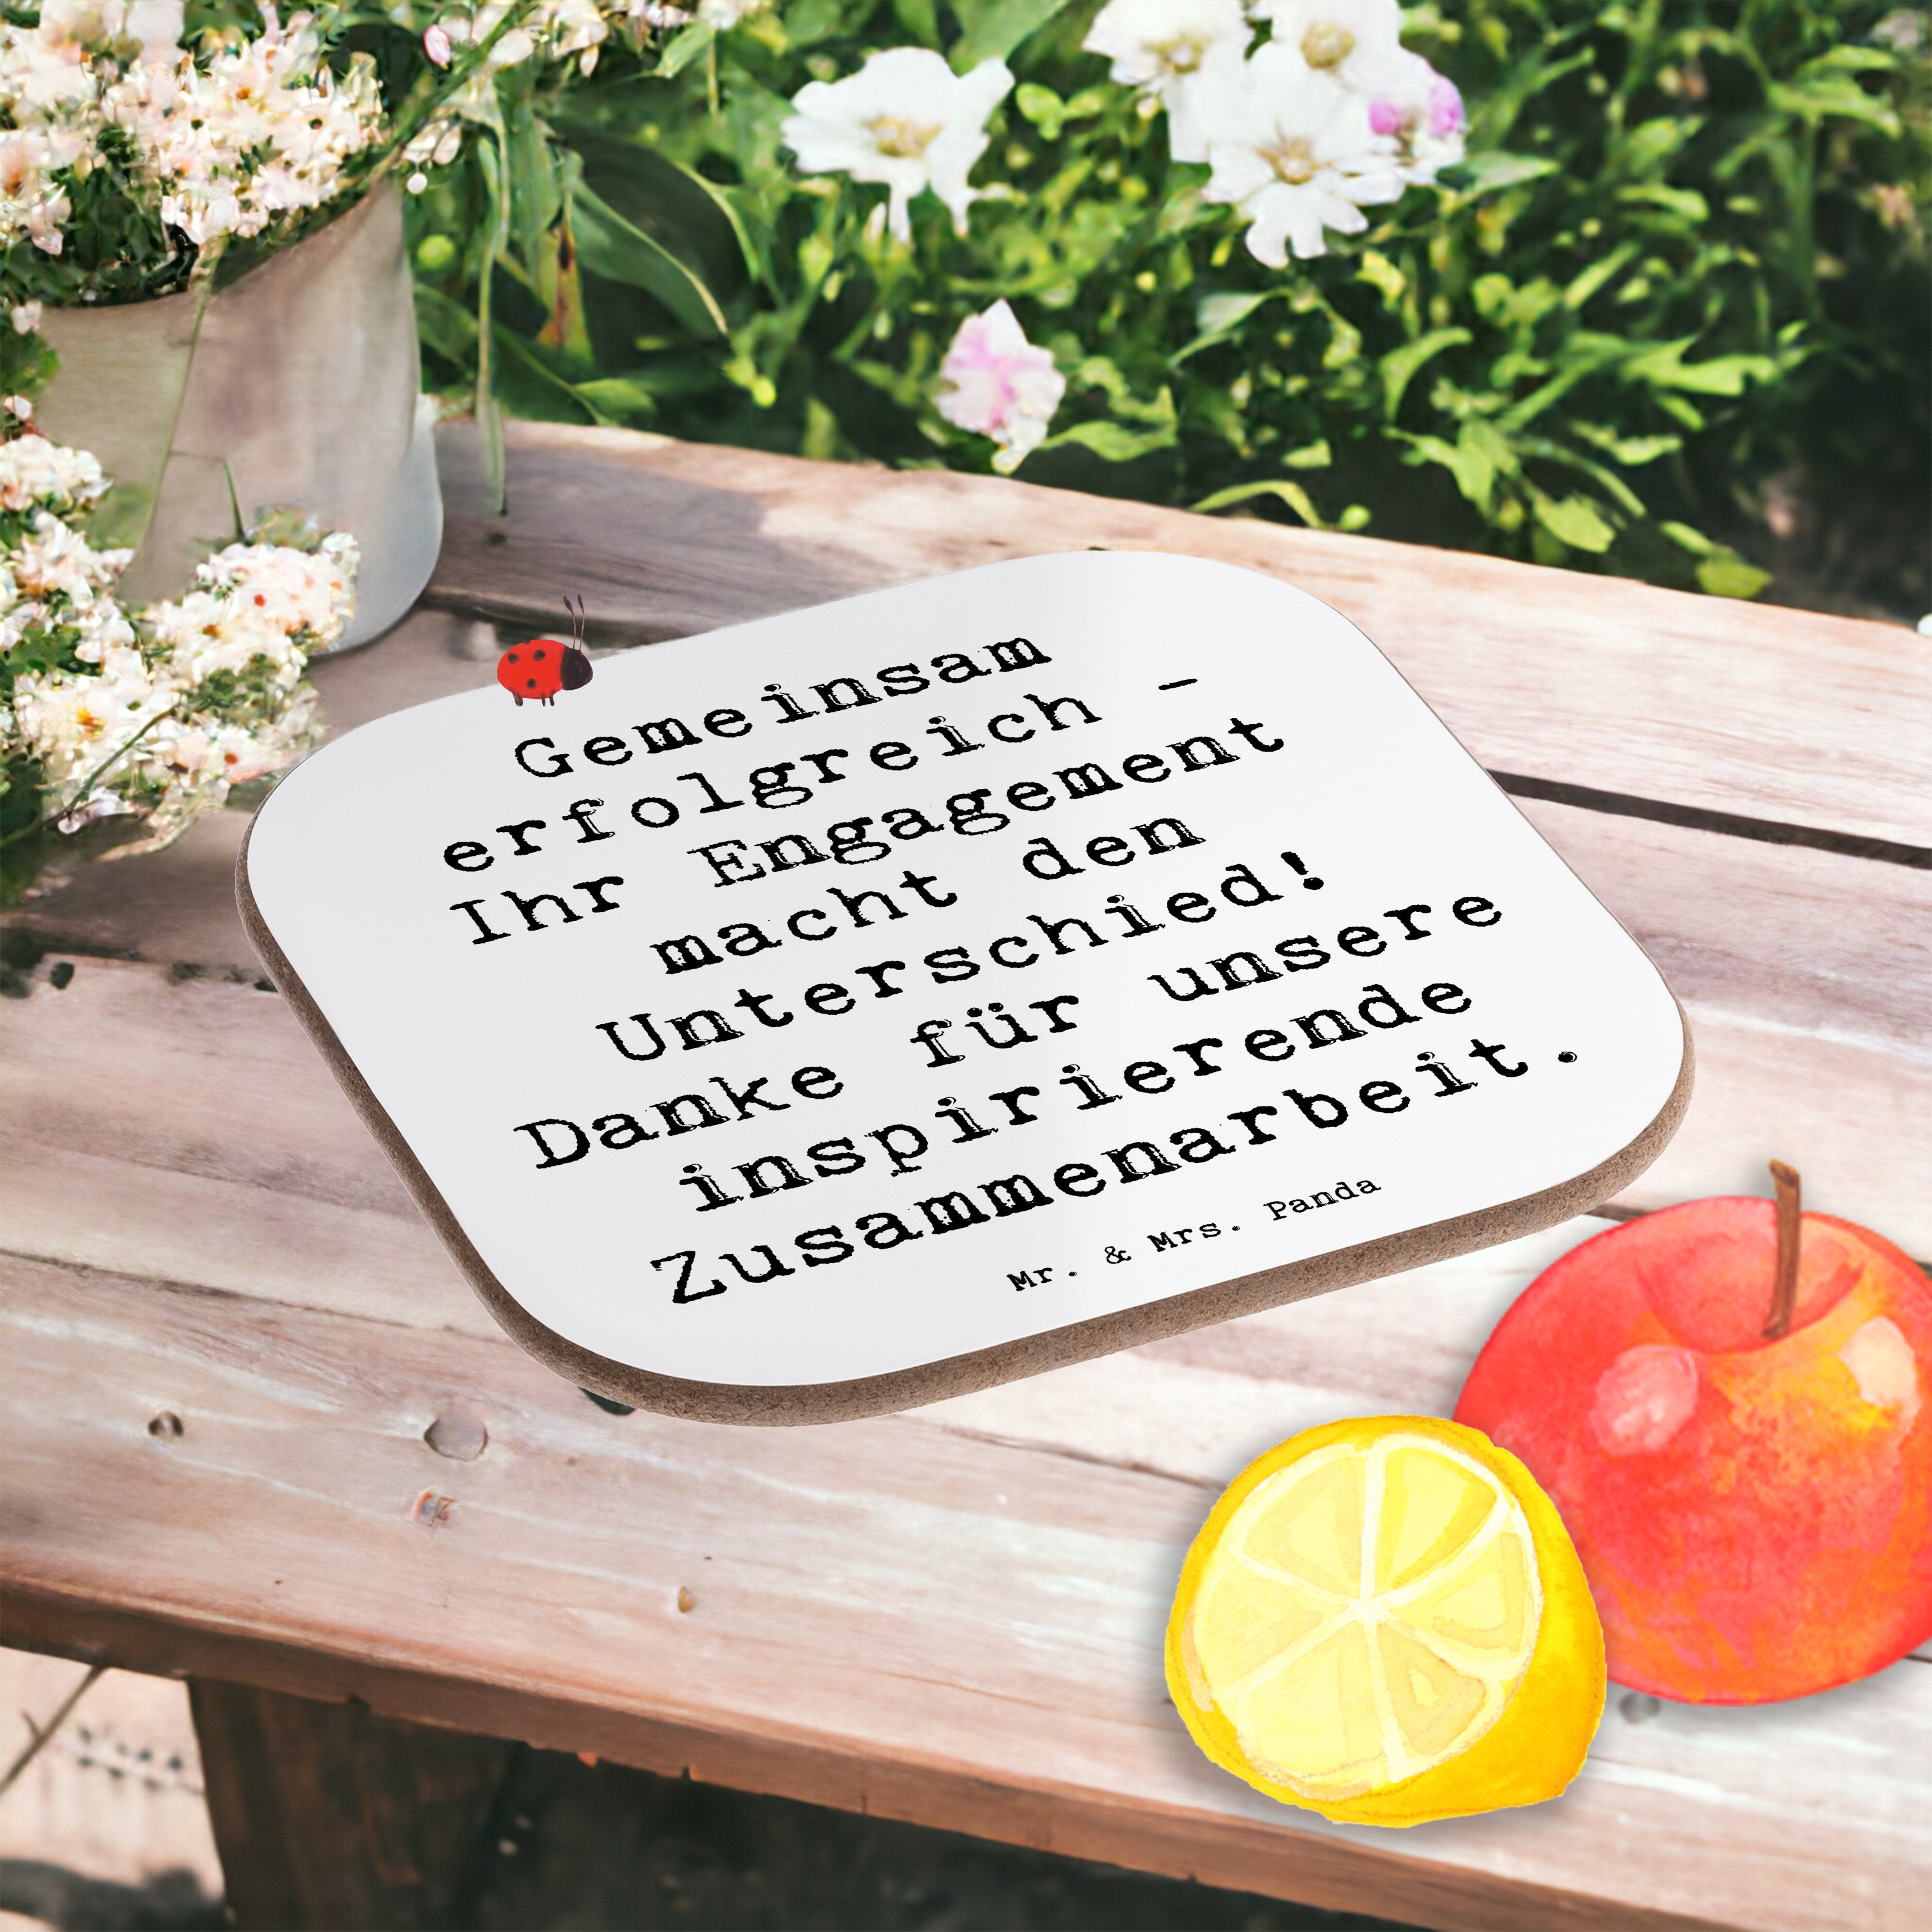 Gemeinsam
erfolgreich -
Ihr Engagement
macht den
Unterschied!
Danke für unsere
inspirierende
Zusammenarbeit.
Mr. & Mrs. Panda